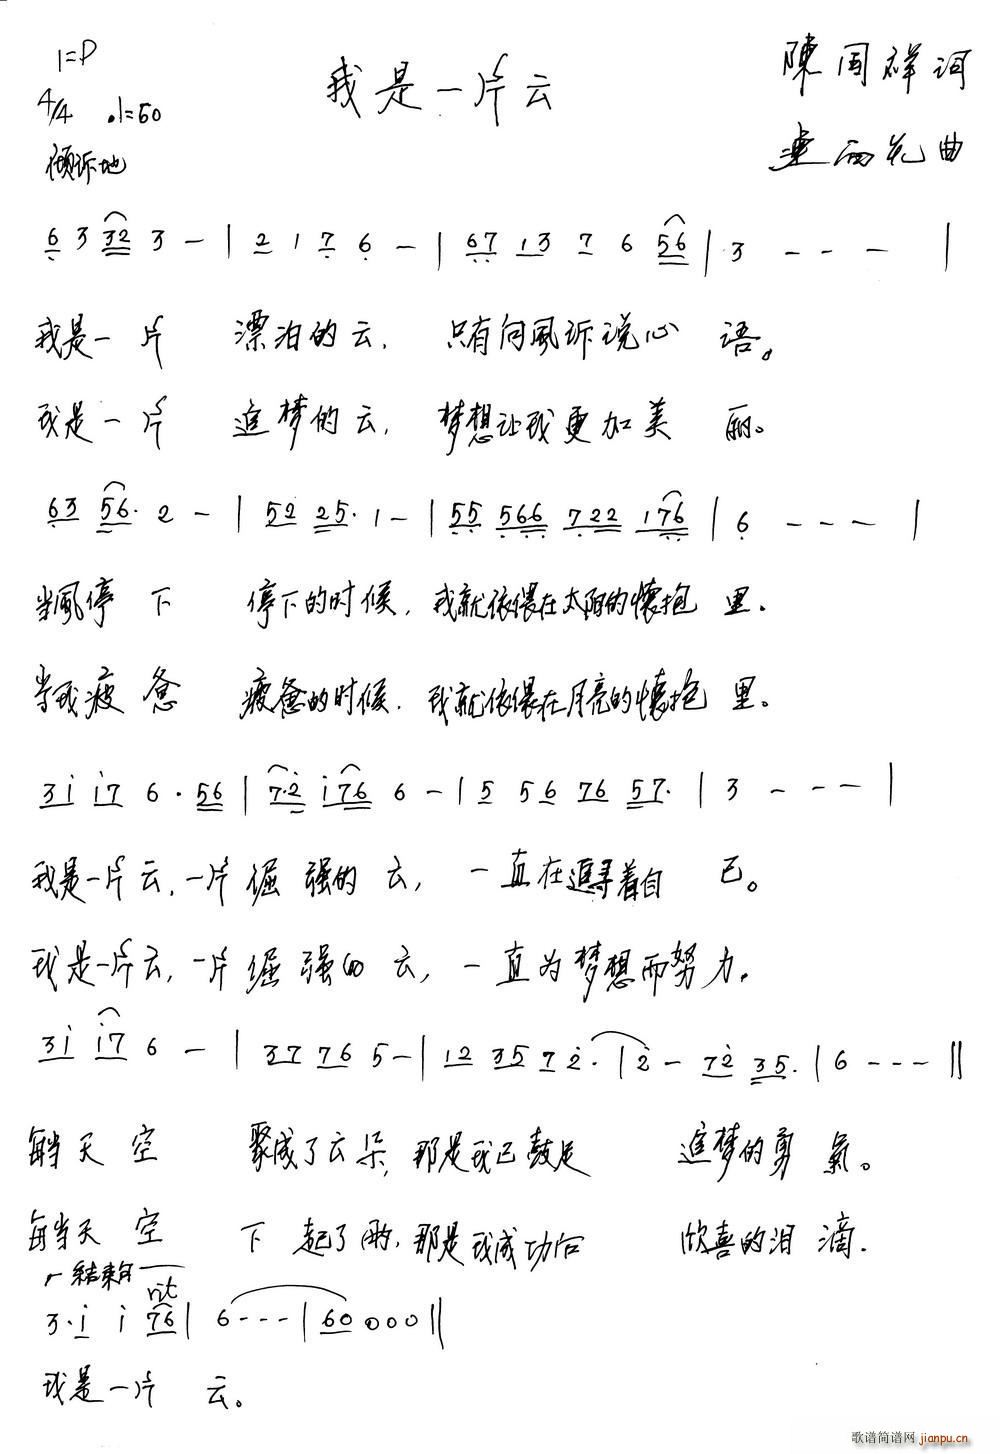 1=D
我是一片云
陳国祥词
4/4 ♩=60
曲
倾诉地
6 3 32 3 - | 2 1 7 6 - | 67 13 7 6 56 | 3 - - - |
我是一片 漂泊的云, 只有向風诉说心 语。
我是一片 追梦的云, 梦想让我更加美 丽。
63 56· 2 - | 52 25· 1 - | 55 566 722 176 | 6 - - - |
当風停 下 停下的时候, 我就依偎在太阳的懷抱 里。
当我疲 惫 疲惫的时候, 我就依偎在月亮的懷抱 里。
3i i7 6 · 56 | 7·2 i76 6 - | 5 56 76 57· | 3 - - - |
我是一片云,一片 倔 强的 云, 一直在追寻着自 己。
我是一片云,一片 倔 强的 云, 一直为梦想而努力。
3i i7 6 - | 37 76 5 - | 12 35 7 2· | 2 - 72 35· | 6 - - - ||
每当天 空 聚成了云朵, 那是我已鼓足 追梦的勇 氣。
每当天 空 下 起了雨, 那是我成功后 欣喜的泪 滴.
结束句 rit
3·i i 76 | 6 - - - | 60 0 0 0 ||
我是一片 云。
歌谱简谱网 jianpu.cn